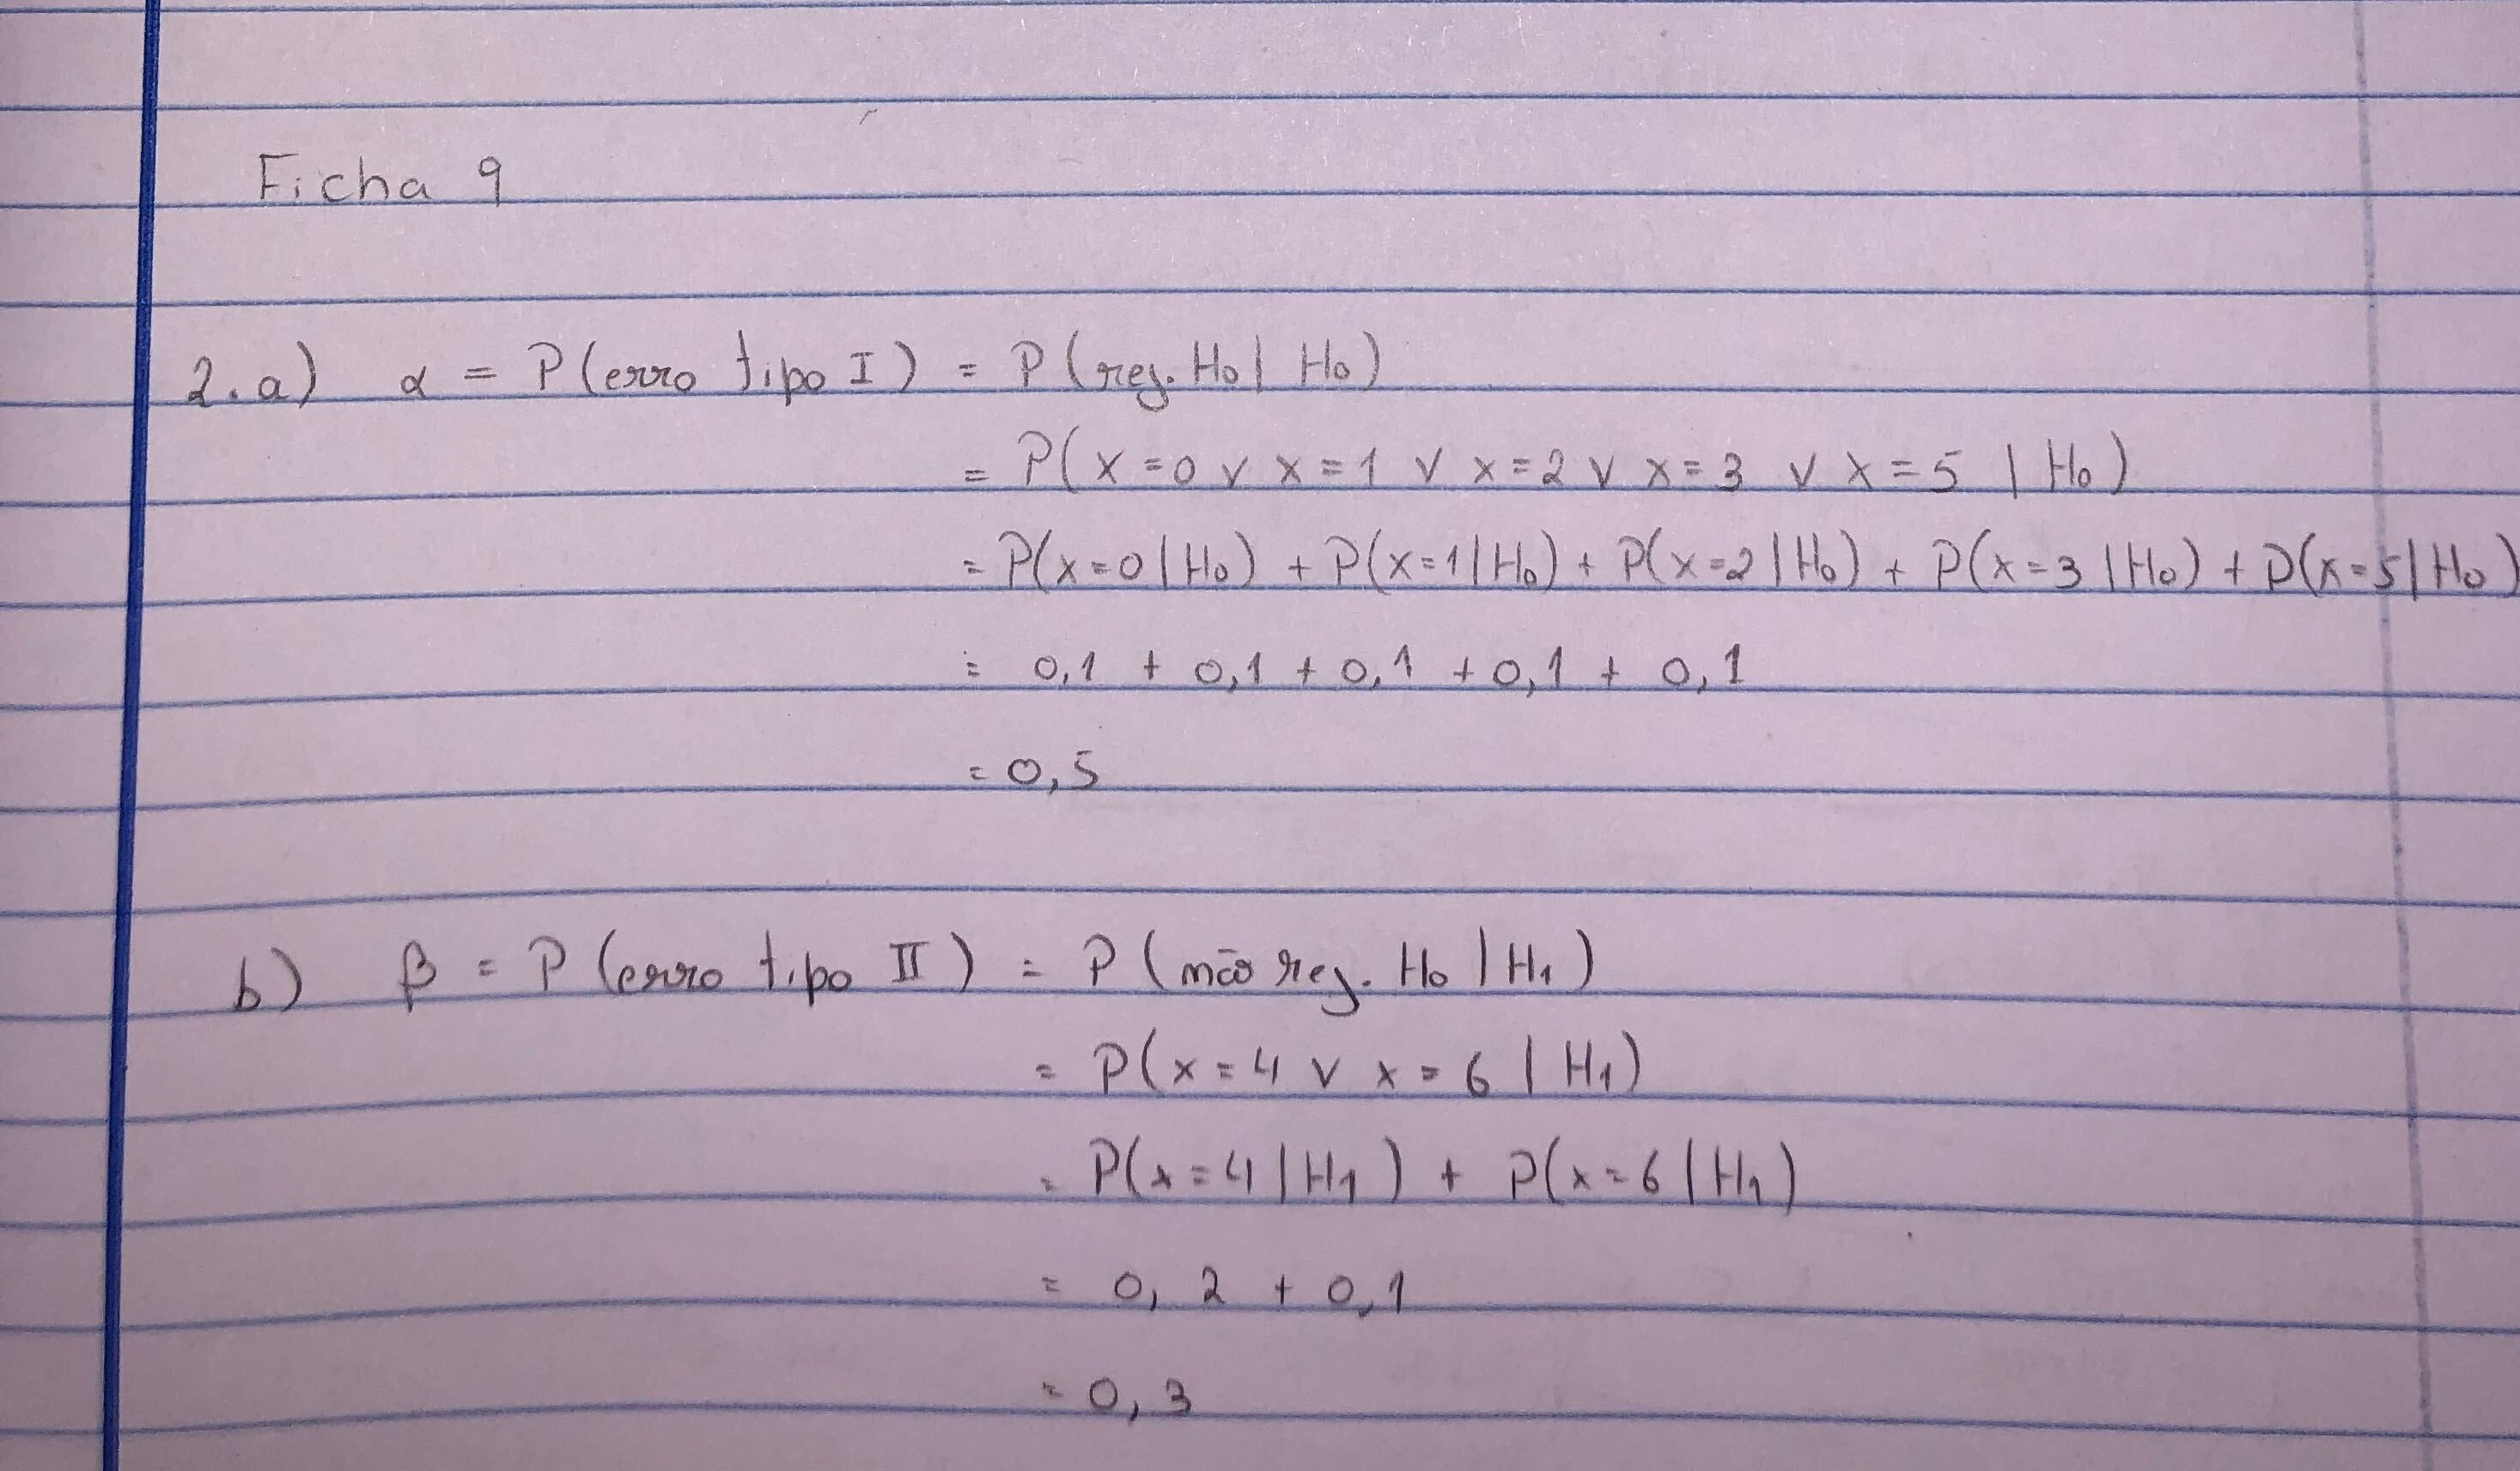 Ficha 9
2.a) α = P(erro tipo I) = P(rej. H₀ | H₀)
= P(x=0 ∨ x=1 ∨ x=2 ∨ x=3 ∨ x=5 | H₀)
= P(x=0|H₀) + P(x=1|H₀) + P(x=2|H₀) + P(x=3|H₀) + P(x=5|H₀)
= 0,1 + 0,1 + 0,1 + 0,1 + 0,1
= 0,5
b) β = P(erro tipo II) = P(não rej. H₀ | H₁)
= P(x=4 ∨ x=6 | H₁)
= P(x=4|H₁) + P(x=6|H₁)
= 0,2 + 0,1
= 0,3